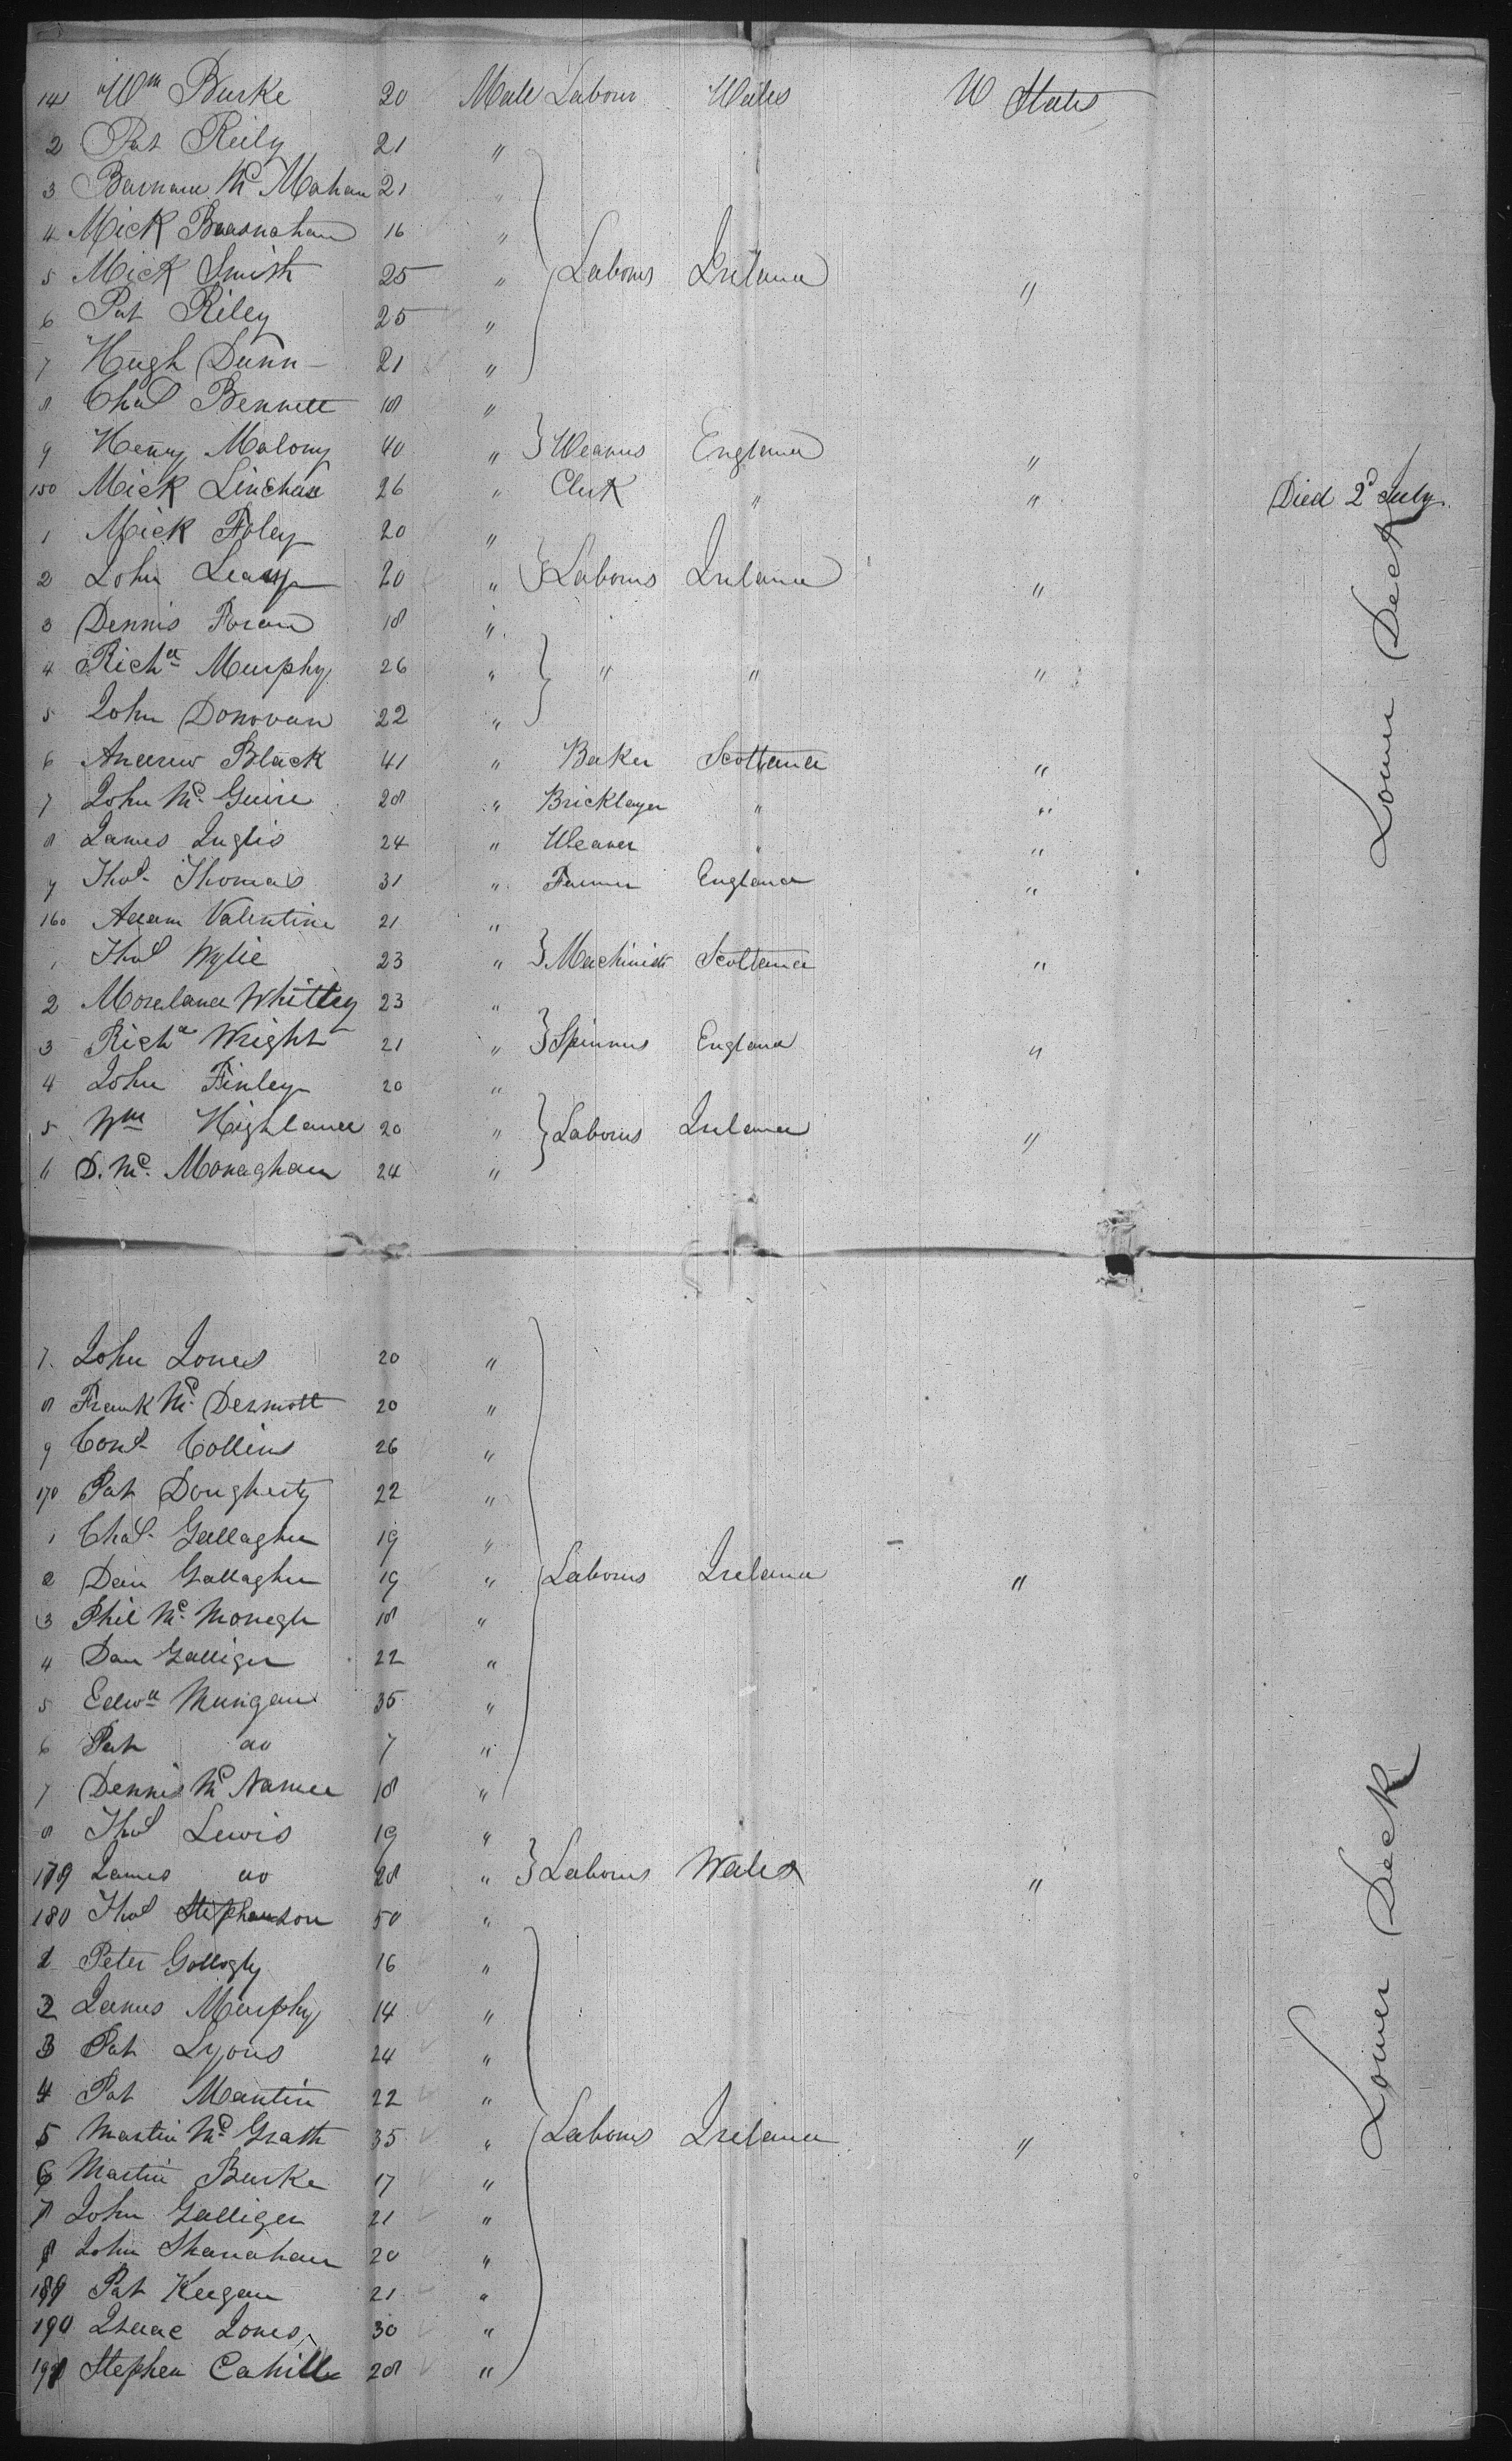 141 Wm Burke 20 Male Labour Wales U States
2 Pat Reily 21 "
3 Barnard Mc Mahan 21 "
4 Mick Brasnahan 16 "
5 Mick Smith 25 " Labours Ireland "
6 Pat Riley 25 "
7 Hugh Dunn 21 "
8 Chas Bennett 18 "
9 Henry Malony 40 " Weavers England "
150 Mick Linehan 26 " Clerk " " Died 2d July
1 Mick Foley 20 "
2 John Leary 20 " Labours Ireland "
3 Dennis Foran 18 "
4 Richd Murphy 26 " " " "
5 John Donovan 22 "
6 Andrew Black 41 " Baker Scotland "
7 John Mc Guire 28 " Bricklayer " "
8 James Inglis 24 " Weaver " "
9 Thos Thomas 31 " Farmer England "
Lower Deck
160 Adam Valentine 21 "
1 Thos Wylie 23 " Machinists Scotland "
2 Moreland Whittey 23 "
3 Richd Wright 21 " Spinners England "
4 John Finley 20 "
5 Wm Highland 20 " Labours Ireland "
6 D. Mc Monagham 24 "
7 John Jones 20 "
8 Frank Mc Dermott 20 "
9 Cons Collins 26 "
170 Pat Dougherty 22 "
1 Chas Gallagher 19 "
2 Dan Gallagher 19 " Labours Ireland "
3 Phil Mc Monegh 18 "
4 Dan Galliger 22 "
5 Edwd Mungan 35 "
6 Pat do 7 "
7 Dennis Mc Namee 18 "
8 Thos Lewis 19 "
179 James do 28 " Labours Wales "
180 Thos Stephenson 50 "
1 Peter Gollogly 16 "
2 James Murphy 14 "
3 Pat Lyons 24 "
4 Pat Mantin 22 "
5 Martin Mc Grath 35 " Labours Ireland "
6 Martin Burke 17 "
7 John Galliger 21 "
8 John Shanahan 20 "
189 Pat Keegan 21 "
190 Isaac Jones 30 "
191 Stephen Cahill 28 "
Lower Deck